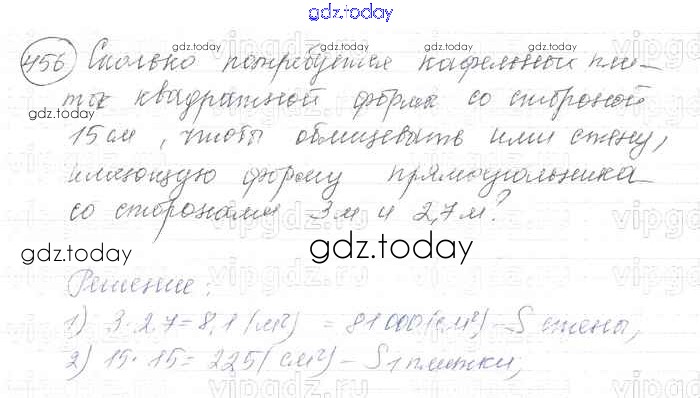 gdz.today
456 Сколько потребуется кафельных пли-
ток квадратной формы со стороной
15 см, чтобы облицевать ими стену,
имеющую форму прямоугольника
со сторонами 3м и 2,7м?
gdz.today
Решение:
1) 3·2,7=8,1(м²) = 81000(см²)-S стены,
2) 15·15=225(см²)-S 1 плитки;